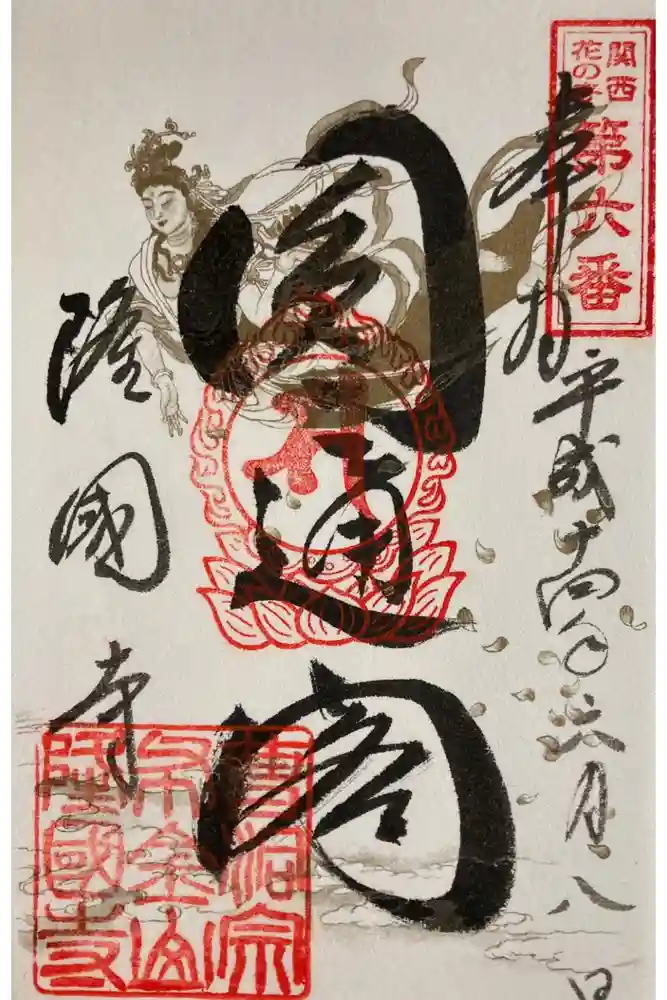 関西
花の寺
第六番
奉拝
平成十四年六月八日
圓通閣
隆國寺
曹洞宗
隆國寺